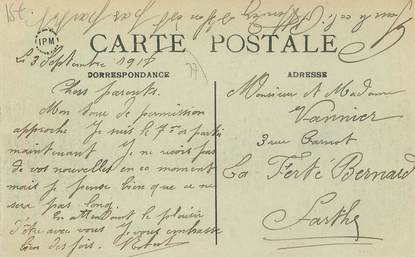 157
IPM
CARTE POSTALE
CORRESPONDANCE
ADRESSE
Le 3 Septembre 1917
77
Chers parents.
Mon tour de permission
approche Je suis le 7e a partir
maintenant Je ne reçois pas
de vos nouvelles en ce moment
mais je pense bien que ce ne
sera pas long.
En attendant le plaisir
d'être avec vous Je vous embrasse
bien des fois.
Monsieur et Madame
Vannier
3 rue Carnot
La Ferté Bernard
Sarthe